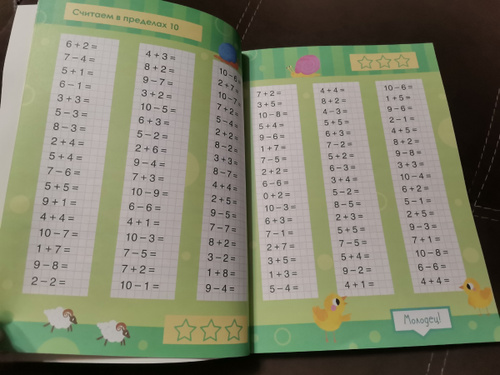 Считаем в пределах 10
6 + 2 =
7 − 4 =
5 + 1 =
6 − 1 =
3 + 3 =
5 − 3 =
8 − 3 =
2 + 4 =
5 + 4 =
7 − 6 =
5 + 5 =
9 + 1 =
4 + 4 =
10 − 7 =
1 + 7 =
9 − 8 =
2 − 2 =
4 + 3 =
8 + 2 =
9 − 7 =
3 + 2 =
10 − 5 =
6 + 3 =
5 − 2 =
2 + 6 =
9 − 4 =
7 + 3 =
10 − 9 =
6 − 6 =
4 + 4 =
10 − 3 =
7 − 5 =
7 + 2 =
10 − 1 =
10 − 6 =
2 + 7 =
10 − 7 =
7 + 2 =
5 − 4 =
2 + 2 =
8 − 2 =
3 + 3 =
8 − 7 =
4 + 4 =
2 + 5 =
9 − 5 =
7 − 7 =
8 + 2 =
3 − 2 =
1 + 8 =
9 − 4 =
7 + 2 =
3 + 5 =
10 − 8 =
5 + 4 =
9 − 6 =
1 + 7 =
7 − 5 =
2 + 2 =
6 − 6 =
0 + 2 =
10 − 3 =
6 + 3 =
7 − 1 =
2 + 7 =
3 + 5 =
1 + 3 =
5 − 4 =
4 + 4 =
8 + 2 =
4 − 3 =
5 + 5 =
6 + 3 =
7 − 2 =
5 + 2 =
6 − 3 =
3 + 4 =
5 − 2 =
8 − 5 =
2 + 3 =
5 + 5 =
7 − 5 =
5 + 4 =
9 − 2 =
4 + 1 =
10 − 6 =
1 + 5 =
9 − 6 =
2 − 1 =
4 + 5 =
8 + 2 =
9 − 8 =
3 + 3 =
10 − 4 =
6 + 2 =
5 − 1 =
2 + 5 =
9 − 3 =
7 + 1 =
10 − 8 =
6 − 6 =
4 + 4 =
Молодец!